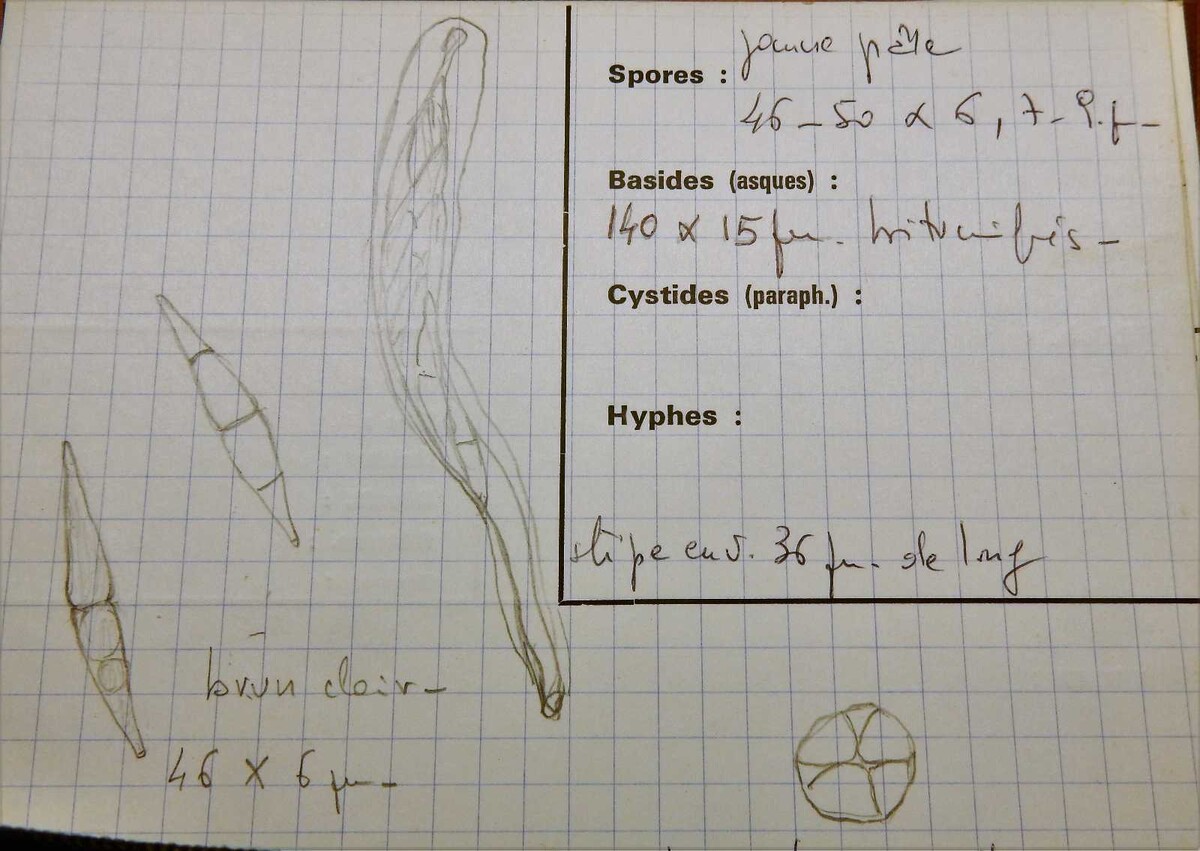 Spores : jaune pâle
46 - 50 x 6, 7 - 9 µ -
Basides (asques) :
140 x 15 µm. bituniqués -
Cystides (paraph.) :
Hyphes :
stipe env. 36 µm. de long
brun clair -
46 X 6 µm -